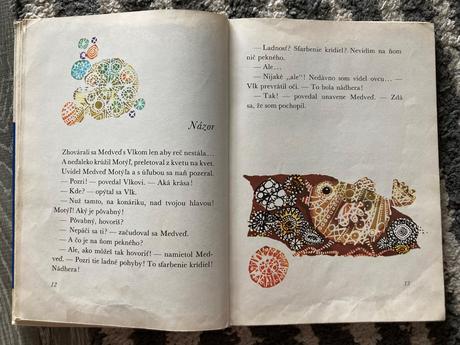 Názor
Zhovárali sa Medveď s Vlkom len aby reč nestála...
A neďaleko krúžil Motýľ, preletoval z kvetu na kvet.
Uvidel Medveď Motýľa a s ľúbou sa naň pozeral.
— Pozri! — povedal Vlkovi. — Aká krása!
— Kde? — opýtal sa Vlk.
— Nuž tamto, na konáriku, nad tvojou hlavou!
Motýľ! Aký je pôvabný!
— Pôvabný, hovoríš?
— Nepáči sa ti? — začudoval sa Medveď.
— A čo je na ňom pekného?
— Ale, ako môžeš tak hovoriť! — namietol Med-
veď. — Pozri tie ladné pohyby! To sfarbenie krídiel!
Nádhera!
12
— Ladnosť? Sfarbenie krídiel? Nevidím na ňom
nič pekného.
— Ale...
— Nijaké „ale“! Nedávno som videl ovcu... —
Vlk prevrátil oči. — To bola nádhera!
— Tak! — povedal unavene Medveď. — Zdá
sa, že som pochopil.
13